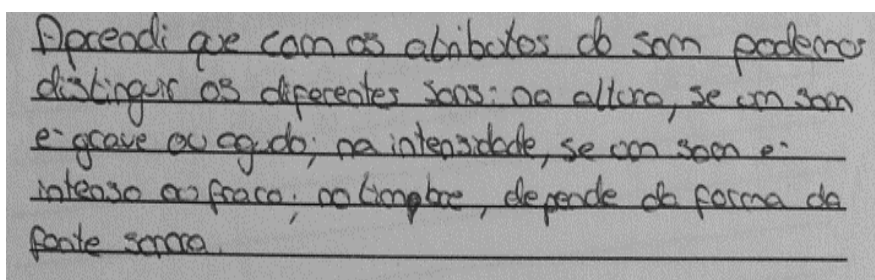 Aprendi que com os atributos do som podemos
distinguir os diferentes sons: na altura, se um som
é grave ou agudo; na intensidade, se um som é
intenso ou fraco; no timbre, depende da forma da
fonte sonora.